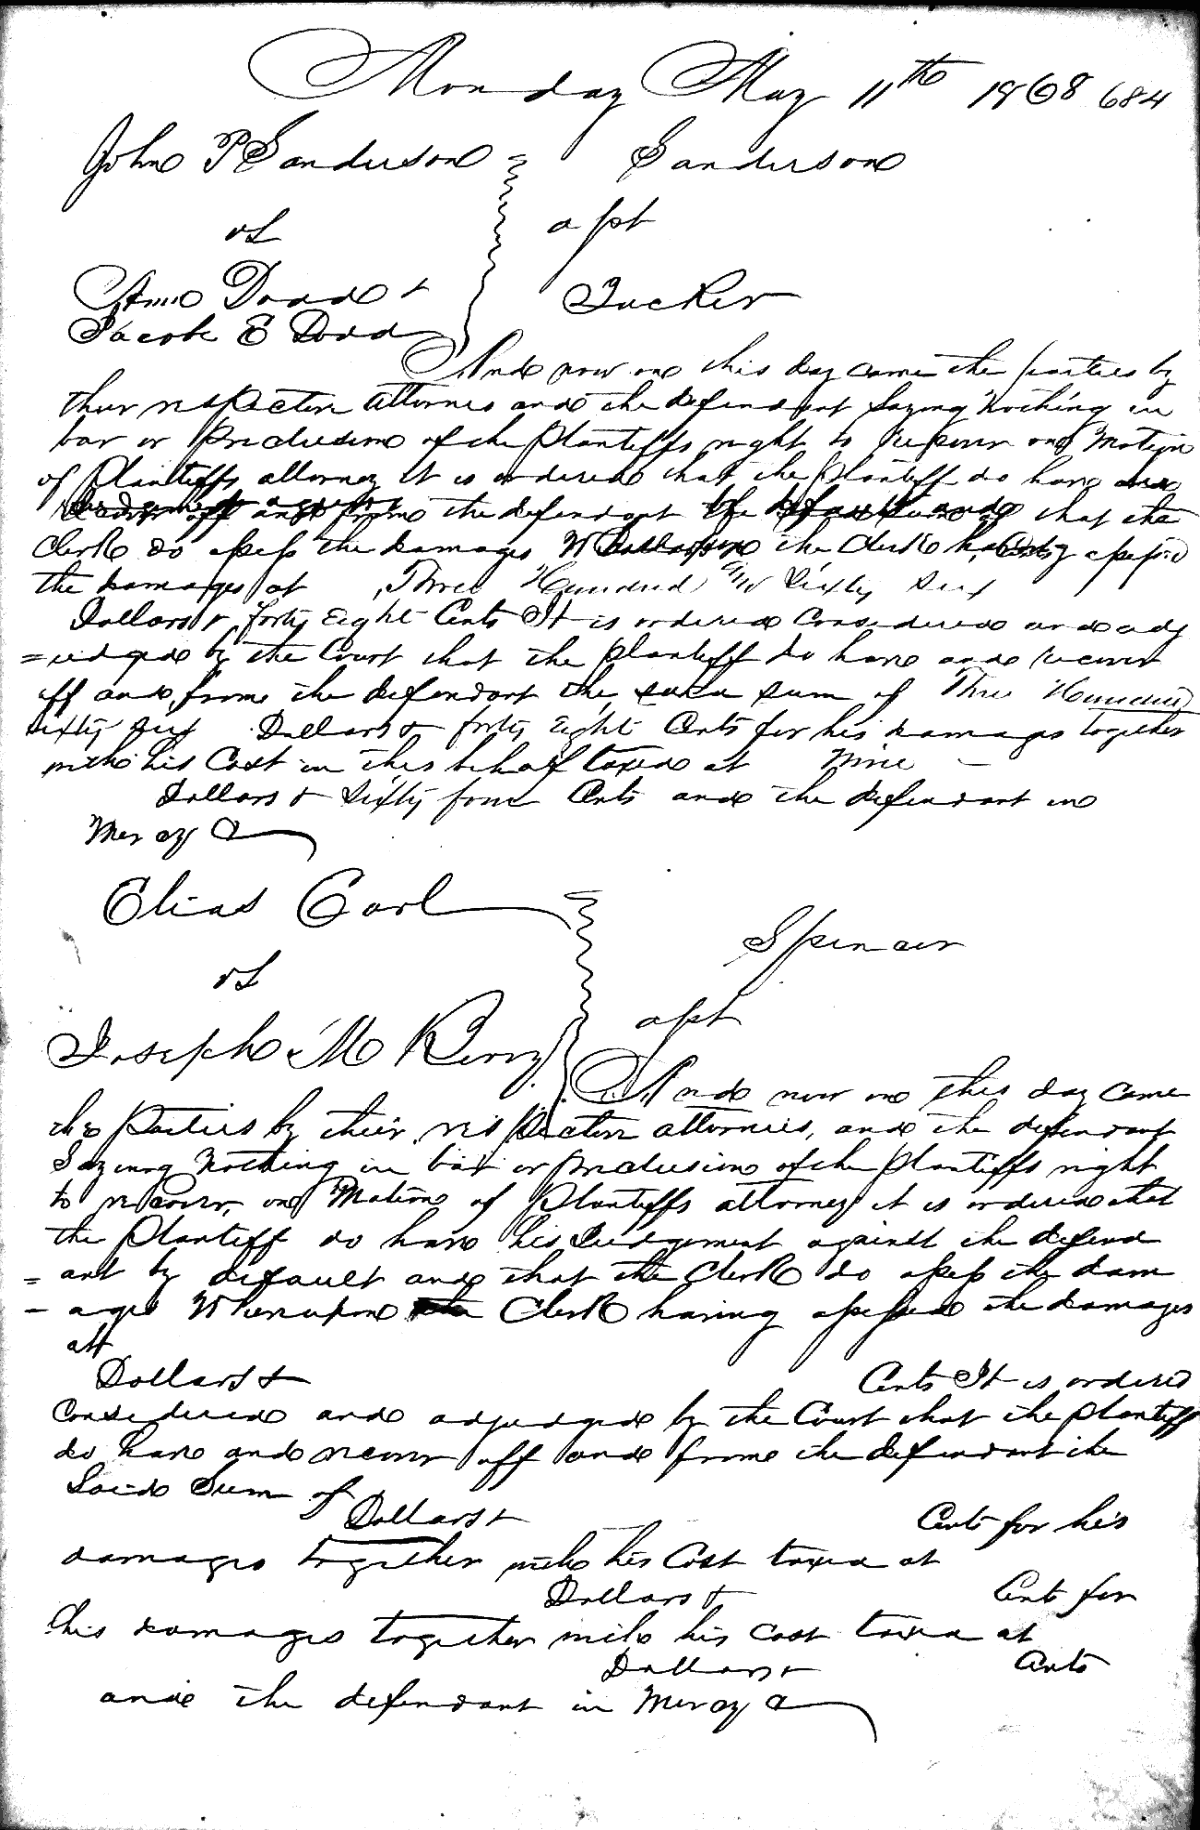 Monday May 11th 1868 684
John P Sanderson Sanderson
vs apt
Ann Dodd & Tucker
Jacob E Dodd
And now on this day came the parties by
their respective attornies and the defendant Saying nothing in
bar or Preclusion of the Plantiffs right to recover on Motion
of Plantiffs attorney it is ordered that the plantiff do have
off and from the defendant the that the
Clerk do assess the damages the Clerk having assessed
the damages at Three Hundred and Sixty Six
Dollars & forty Eight Cents It is ordered Considered and adj
=udged by the Court that the plantiff do have and recover
off and from the defendant the said sum of Three Hundred
Sixty Six Dollars & forty Eight Cents for his damages together
with his Cost in this behalf taxed at Nine —
Dollars & Sixty four Cents and the defendant in
Mercy &
Elias Earl
Spencer
vs
apt
Joseph M Berry
And now on this day Came
the Parties by their respective attornies, and the defendant
Sayinng Nothing in bar or preclusion of the plantiffs right
to recover, on Motion of Plantiffs attorney it is ordered that
the Plantiff do have his Judgement against the defend
= ant by default and that the Clerk do assess the dam
- ages Whereupon the Clerk having assessed the damages
att
Dollars & Cents It is ordered
Considered and adjudged by the Court that the plantiff
do have and recover off and from the defendant the
Said Sum of
Dollars & Cents for his
damages together with his Cost taxed at
Dollars & Cents for
his damages together with his cost taxed at
Dollars & Cents
and the defendant in Mercy &